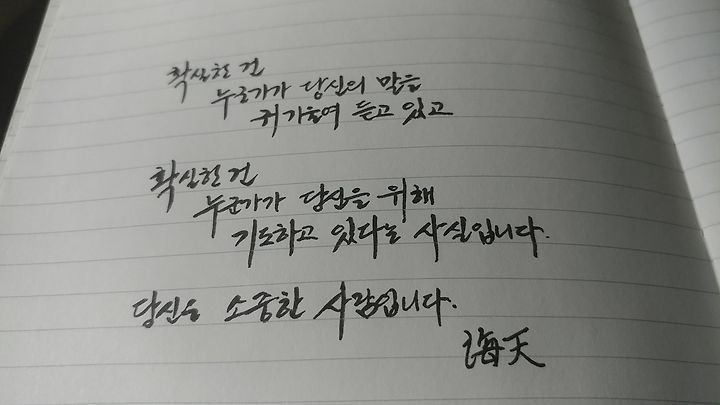 확실한 건
누군가가 당신의 말을
귀 기울여 듣고 있고
확실한 건
누군가가 당신을 위해
기도하고 있다는 사실입니다.
당신은 소중한 사람입니다.
海天